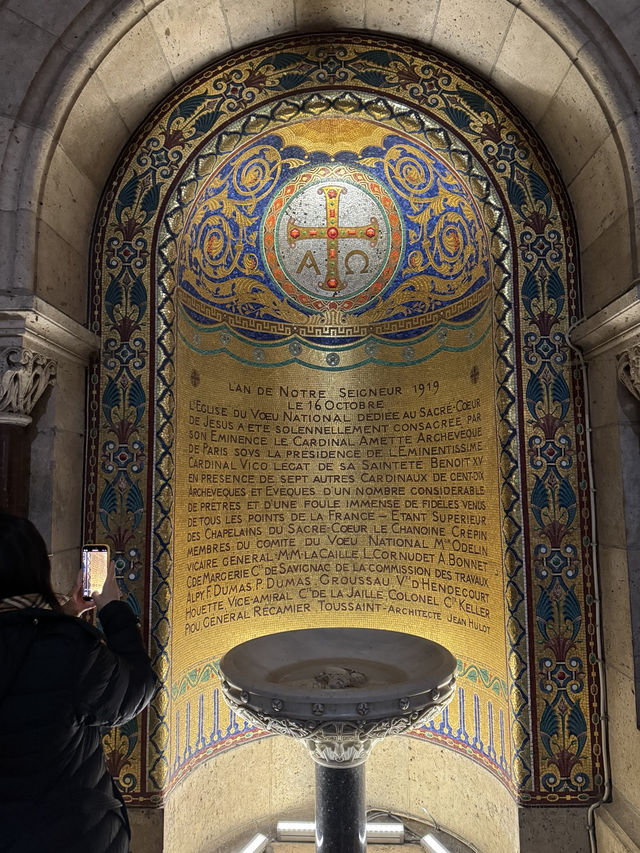 Α Ω
LAN DE NOTRE SEIGNEUR 1919
LE 16 OCTOBRE
L'EGLISE DU VŒU NATIONAL DEDIEE AU SACRE-CŒUR
DE JESUS A ETE SOLENNELLEMENT CONSACREE PAR
SON EMINENCE LE CARDINAL AMETTE ARCHEVEQUE
DE PARIS SOVS LA PRESIDENCE DE L'EMINENTISSIME
CARDINAL VICO LEGAT DE SA SAINTETE BENOIT XV
EN PRESENCE DE SEPT AUTRES CARDINAUX DE CENT-DIX
ARCHEVEQUES ET EVEQUES D'UN NOMBRE CONSIDERABLE
DE PRETRES ET D'UNE FOULE IMMENSE DE FIDELES VENUS
DE TOUS LES POINTS DE LA FRANCE – ETANT SUPERIEUR
DES CHAPELAINS DU SACRE-CŒUR LE CHANOINE CREPIN
MEMBRES DU COMITE DU VŒU NATIONAL Mgr ODELIN
VICAIRE GENERAL·M·M·LA CAILLE L.CORNUDET A.BONNET
C DE MARGERIE Cte DE SAVIGNAC DE LA COMMISSION DES TRAVAUX
ALPH. F. DUMAS. P. DUMAS. GROUSSAU Vte D'HENDECOURT
HOUETTE. VICE-AMIRAL Cte DE LA JAILLE. COLONEL Cte KELLER
PIOU. GENERAL RECAMIER TOUSSAINT-ARCHITECTE JEAN HULOT